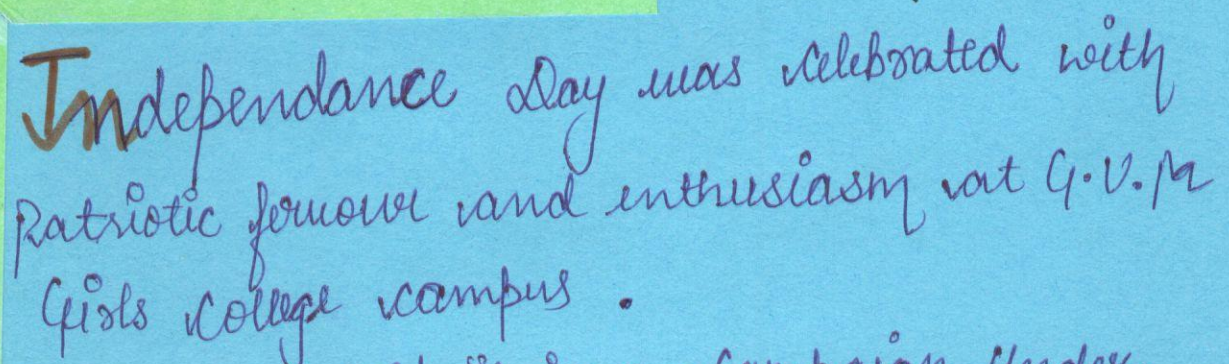 Independance Day was celebrated with
Patriotic fervour and enthusiasm at G.V.M
Girls college campus .